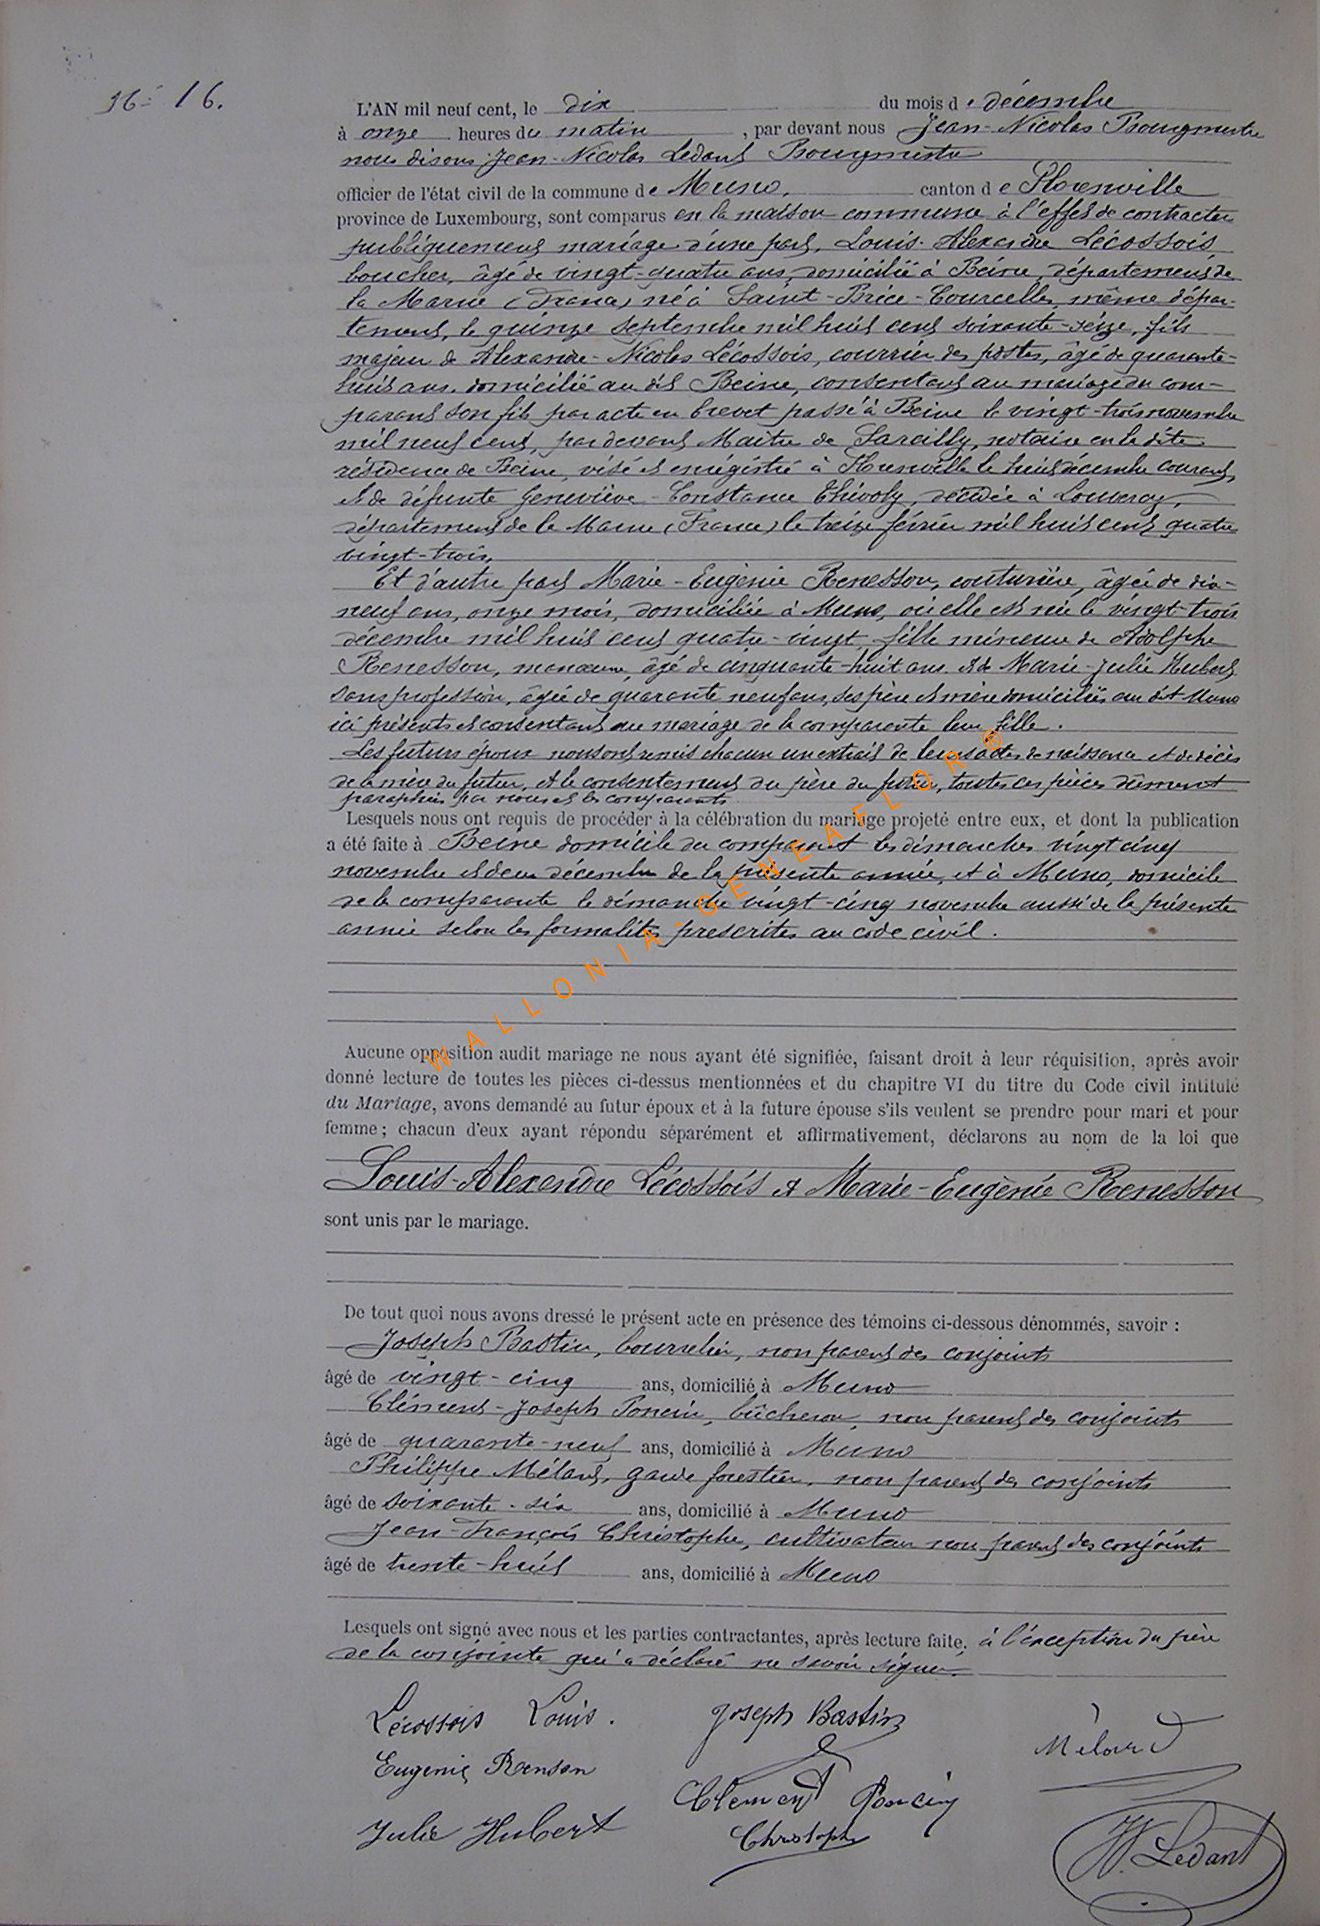 16e 16.
L'AN mil neuf cent, le dix du mois de décembre
à onze heures du matin, par devant nous Jean-Nicolas Bourgmestre
nous disons Jean-Nicolas Ledant Bourgmestre
officier de l'état civil de la commune de Muno, canton de Florenville
province de Luxembourg, sont comparus en la maison commune à l'effet de contracter
publiquement mariage d'une part, Louis-Alexandre Lécossois
boucher, âgé de vingt-quatre ans, domicilié à Beine, département de
la Marne (France) né à Saint-Brice-Courcelles, même dépar-
tement, le quinze septembre mil huit cent soixante-seize, fils
majeur de Alexandre-Nicolas Lécossois, courrier des postes, âgé de quarante-
huit ans, domicilié au dit Beine, consentant au mariage du com-
parant son fils par acte en brevet passé à Beine le vingt-trois novembre
mil neuf cent, par devant Maitre de Sarcilly, notaire en la dite
résidence de Beine, visé et enrégistré à Florenville le huit décembre courant,
et de défunte Geneviève-Constance Thivoly, décédée à Louvercy,
département de la Marne (France) le treize février mil huit cent quatre
vingt-trois.
Et d'autre part Marie-Eugènie Renesson, couturière, âgée de dix-
neuf ans, onze mois, domiciliée à Muno, où elle est née le vingt-trois
décembre mil huit cent quatre-vingt, fille mineure de Adolphe
Renesson, manœuvre, âgé de cinquante-huit ans et de Marie-Julie Hubert
sans profession, âgée de quarante neuf ans, ses père et mère domiciliés au dit Muno
ici présents et consentant au mariage de la comparante leur fille.
Les futurs époux nous ont remis chacun un extrait de leurs actes de naissance et de décès
de la mère du futur, et le consentement du père du futur, toutes ces pièces dûment
paraphées par nous et les comparants
Lesquels nous ont requis de procéder à la célébration du mariage projeté entre eux, et dont la publication
a été faite à Beine domicile du comparant les dimanches vingt cinq
novembre et deux décembre de la présente année, et à Muno, domicile
de la comparante le dimanche vingt-cinq novembre aussi de la présente
année selon les formalités prescrites au code civil.
WALLONIA-GENEAFLOR®
Aucune opposition audit mariage ne nous ayant été signifiée, faisant droit à leur réquisition, après avoir
donné lecture de toutes les pièces ci-dessus mentionnées et du chapitre VI du titre du Code civil intitulé
du Mariage, avons demandé au futur époux et à la future épouse s'ils veulent se prendre pour mari et pour
femme ; chacun d'eux ayant répondu séparément et affirmativement, déclarons au nom de la loi que
Louis-Alexandre Lécossois et Marie-Eugènie Renesson
sont unis par le mariage.
De tout quoi nous avons dressé le présent acte en présence des témoins ci-dessous dénommés, savoir :
Joseph Bastin, bourrelier, non parent des conjoints
âgé de vingt-cinq ans, domicilié à Muno
Clément-Joseph Poncin, bûcheron, non parent des conjoints
âgé de quarante-neuf ans, domicilié à Muno
Philippe Mélard, garde forestier, non parent des conjoints
âgé de soixante-six ans, domicilié à Muno
Jean-François Christophe, cultivateur non parent des conjoints
âgé de trente-huit ans, domicilié à Muno
Lesquels ont signé avec nous et les parties contractantes, après lecture faite, à l'exception du père
de la conjointe qui a déclaré ne savoir signer.
Lécossois Louis. Joseph Bastin
Mélard
Eugenie Renson
Clement Poncin
Julie Hubert Christophe
JN. Ledant